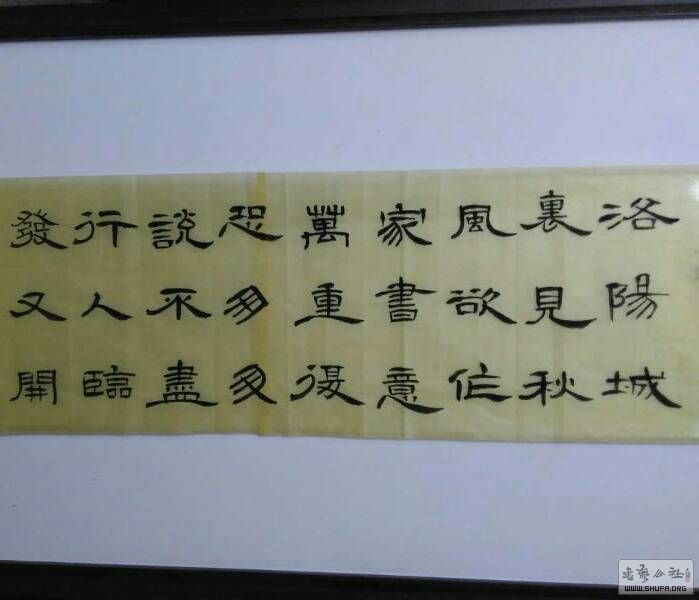 洛陽城
裏見秋
風欲作
家書意
萬重復
恐匆匆
説不盡
行人臨
發又開
书艺公社
WWW.SHUFA.ORG